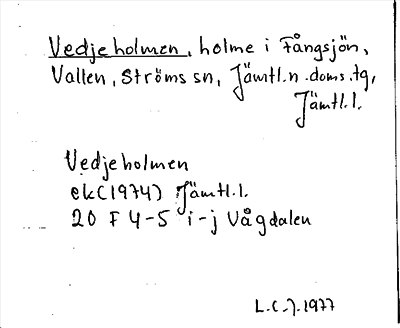 Vedjeholmen, holme i Fångsjön,
Vallen, Ströms sn, Jämtl.n.doms.tg,
Jämtl.l.
Vedjeholmen
ek(1974) Jämtl.l.
20 F 4-5 i-j Vågdalen
L.C.J.1977